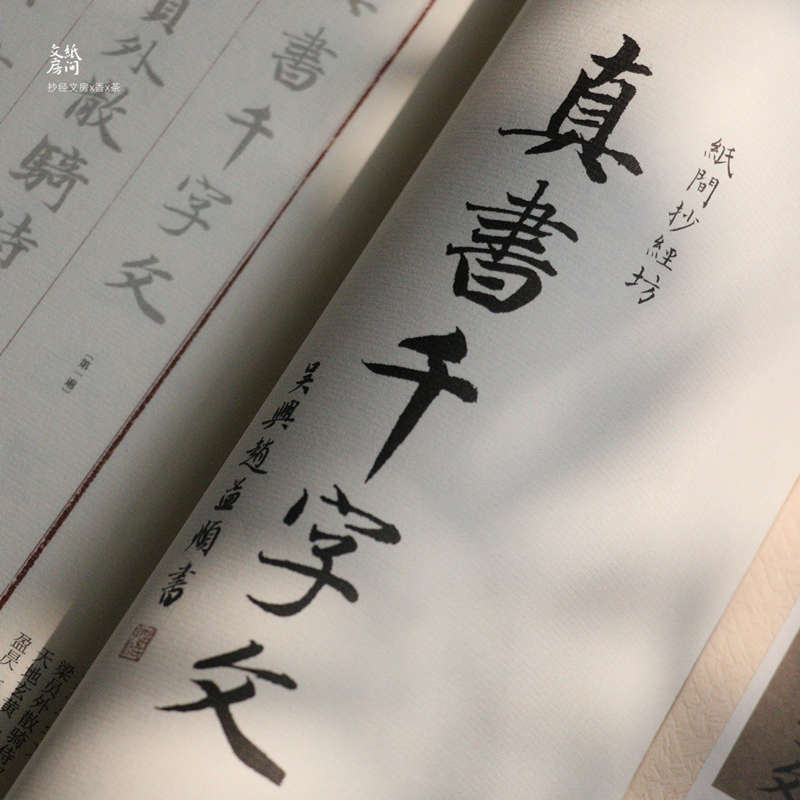 紙间
文房
抄经文房x香x茶
紙間抄經坊
真書千字文
吳興趙孟頫書
真書千字文
(第一遍)
員外散騎侍
梁员外散騎侍
天地玄黃
盈昃